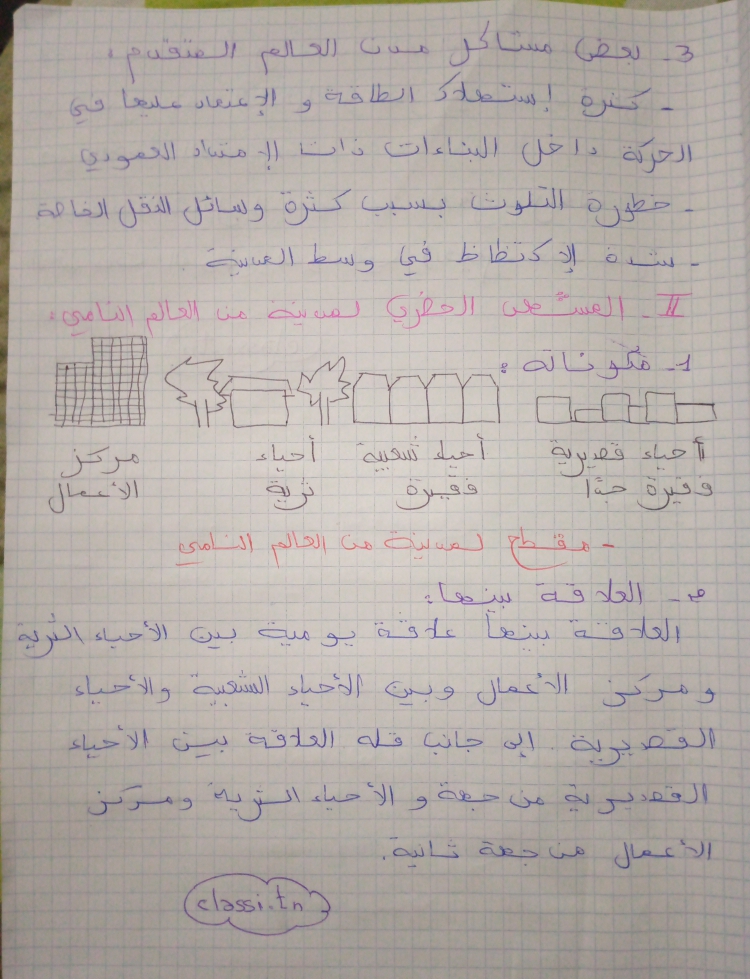 3- بعض مشاكل مدن العالم المتقدم:
- كثرة إستهلاك الطاقة و الإعتماد عليها في
الحركة داخل البناءات ذات الإمتداد العمودي
- خطورة التلوث بسبب كثرة وسائل النقل الخاصة
- شدة الإكتظاظ في وسط المدينة
II- المشهد الحضري لمدينة من العالم النامي:
1- مكوناته:
أحياء قصديرية أحياء شعبية أحياء مركز
فقيرة جدًا فقيرة ثرية الأعمال
- مقطع لمدينة من العالم النامي
- العلاقة بينها:
العلاقة بينها علاقة يومية بين الأحياء الثرية
ومركز الأعمال وبين الأحياء الشعبية والأحياء
القصديرية إلى جانب قلة العلاقة بين الأحياء
القصديرية من جهة و الأحياء الثرية ومركز
الأعمال من جهة ثانية.
classi.tn